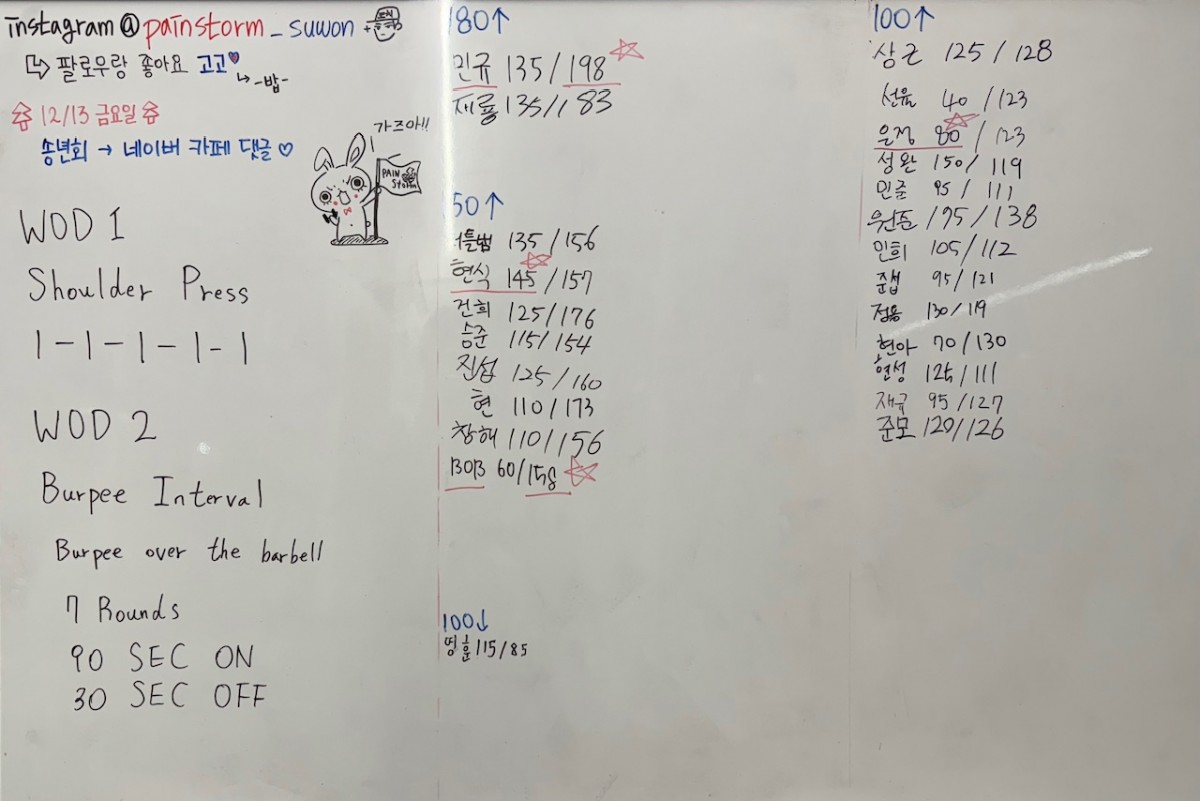 instagram@painstorm_suwon
팔로우랑 좋아요 고고
-밥-
12/13 금요일
송년회 → 네이버 카페 댓글 ♡
가즈아!!
PAIN Storm
WOD 1
Shoulder Press
1-1-1-1-1
WOD 2
Burpee Interval
Burpee over the barbell
7 Rounds
90 SEC ON
30 SEC OFF
180↑
민규 135/198
재룡 135/183
50↑
135/156
현식 145/157
건희 125/176
승준 115/154
진섭 125/160
현 110/173
창해 110/156
BOB 60/158
100↓
명훈 115/85
100↑
상근 125/128
선율 40/123
윤정 80/123
성완 150/119
민준 95/111
원준 175/138
민희 105/112
준섭 95/121
정용 130/119
현아 70/130
현성 125/111
재규 95/127
준모 120/126